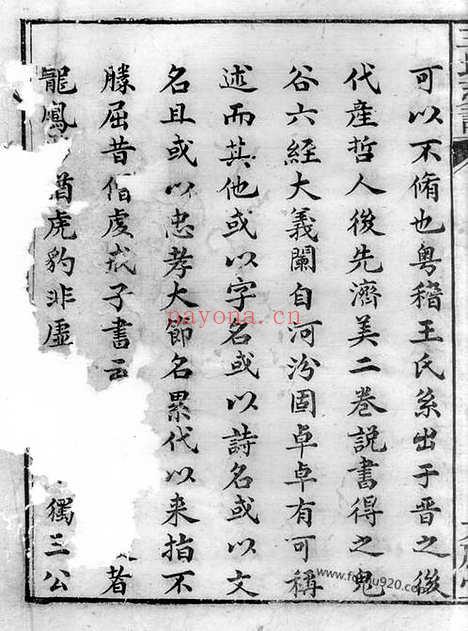 可以不脩也粤稽王氏系出于晉之後
代產哲人後先濟美二卷說書得之鬼
谷六經大義闡自河汾固卓卓有可稱
述而其他或以字名或以詩名或以文
名且或以忠孝大節名累代以来指不
勝屈昔僧虔戒子書云 著
龍鳳 猶虎豹非虛 獨三公
nayona.com
www.fojiu920.com